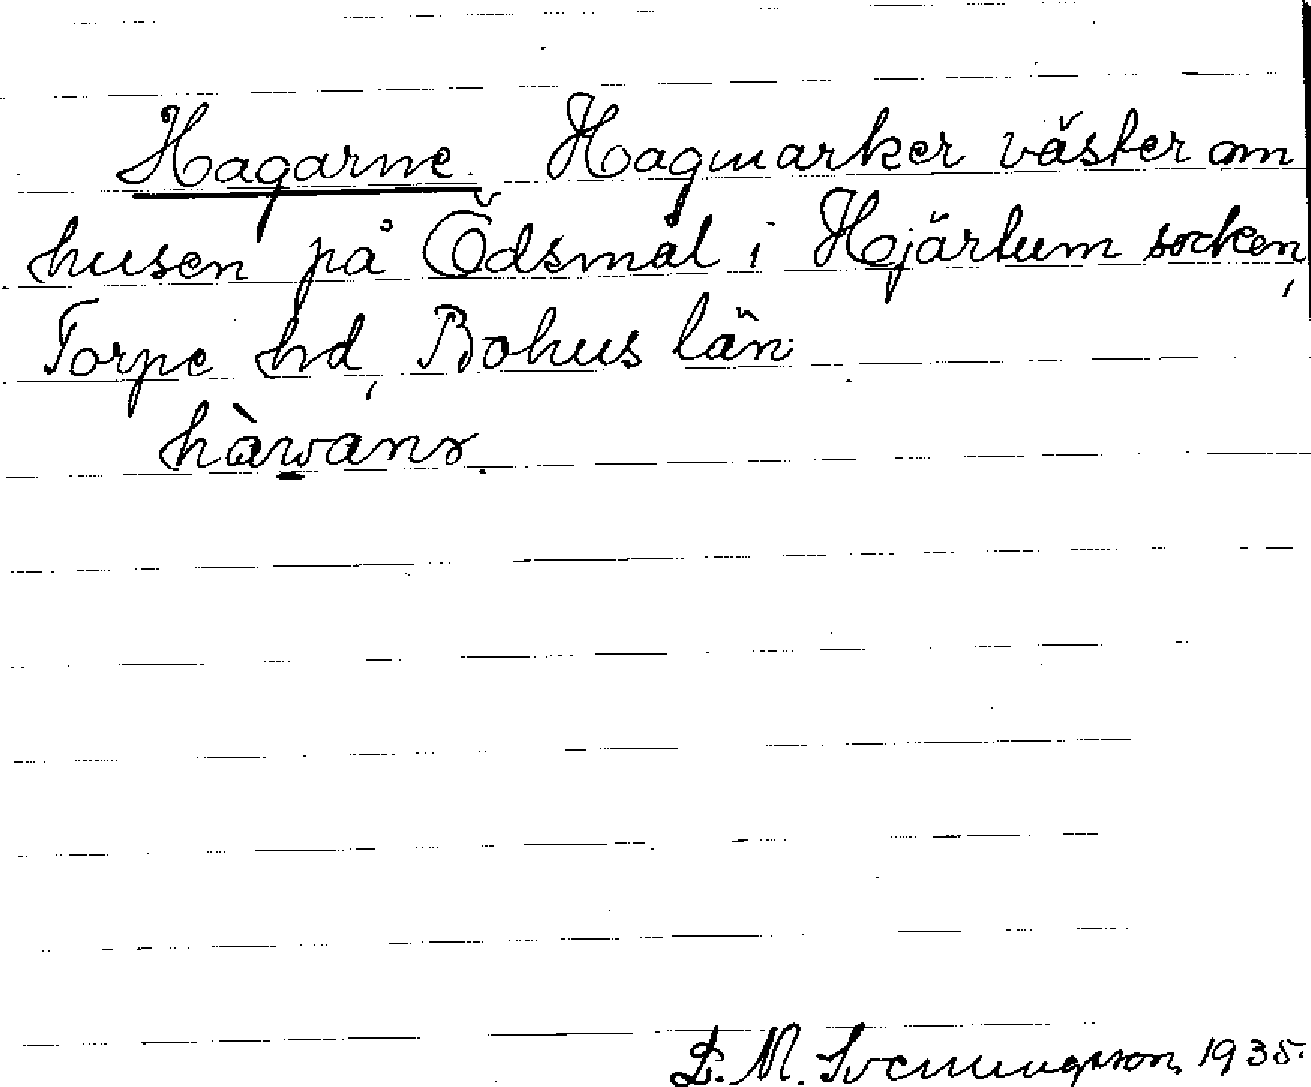 Hagarne Hagmarker väster om
husen på Ödsmål i Hjärtum socken,
Torpe hd, Bohus län.
hàwanr.
D. M. Svenningsson 1935.